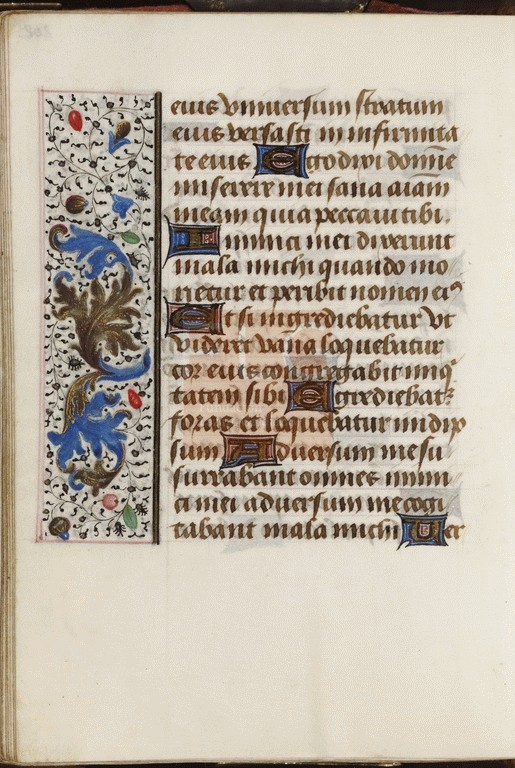 eius vniuersum stratum
eius versasti in infirmita
te eius Ego dixi domine
miserere mei sana aiam
meam quia peccaui tibi.
Inimici mei dixerunt
mala michi quando mo
rietur et peribit nomen eiꝰ
Et si ingrediebatur vt
videret vana loquebatur
cor eius congregabit iniq̄
tatem sibi Egrediebatꝛ
foras et loquebatur in idip
sum Aduersum me su
surrabant omnes inimi
ci mei aduersum me cogi
tabant mala michi Uer